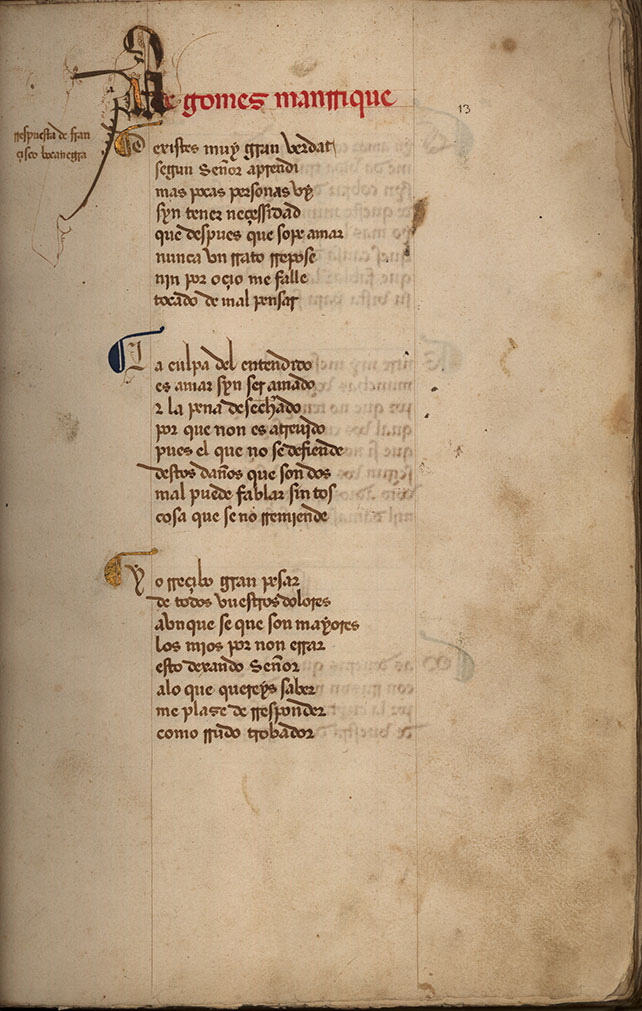 de gomes manrrique
13
rrespuesta de fran
çisco bocanegra
Dexistes muy gran verdat
segun Señor aprendi
mas pocas personas vy
syn tener neçessidad
que despues que sope amar
nunca vn rrato rrepose
nin por oçio me falle
tocado de mal pensar
La culpa del entendido
es amar syn ser amado
z la pena desechado
por que non es atreuido
pues el que no se defiende
destos daños que son dos
mal puede fablar sin tos
cosa que se no rremiende
Yo rreçibo gran pesar
de todos vuestros dolores
avnque se que son mayores
los mios por non errar
esto dexando Señor
alo que quereys saber
me plase de rresponder
como rrudo trobador